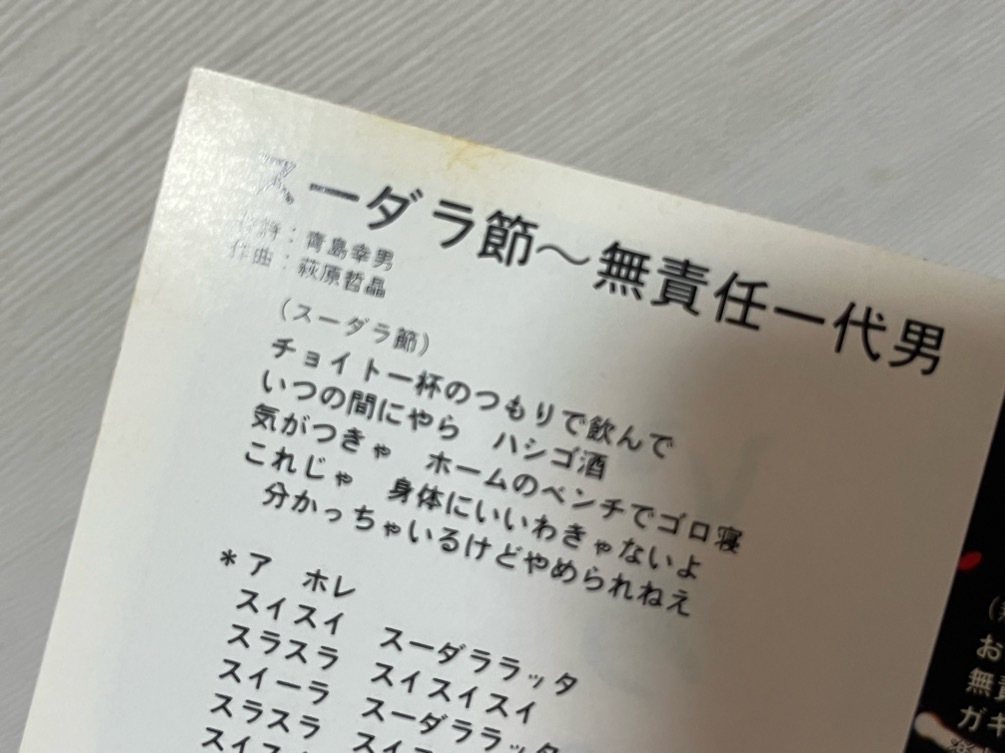 スーダラ節～無責任一代男
作詩：青島幸男
作曲：萩原哲晶
（スーダラ節）
チョイト一杯のつもりで飲んで
いつの間にやら　ハシゴ酒
気がつきゃ　ホームのベンチでゴロ寝
これじゃ　身体にいいわきゃないよ
分かっちゃいるけどやめられねえ
＊ア　ホレ
スイスイ　スーダララッタ
スラスラ　スイスイスイ
スイーラ　スーダララッタ
スラスラ　スイス
お
無責
ガキ